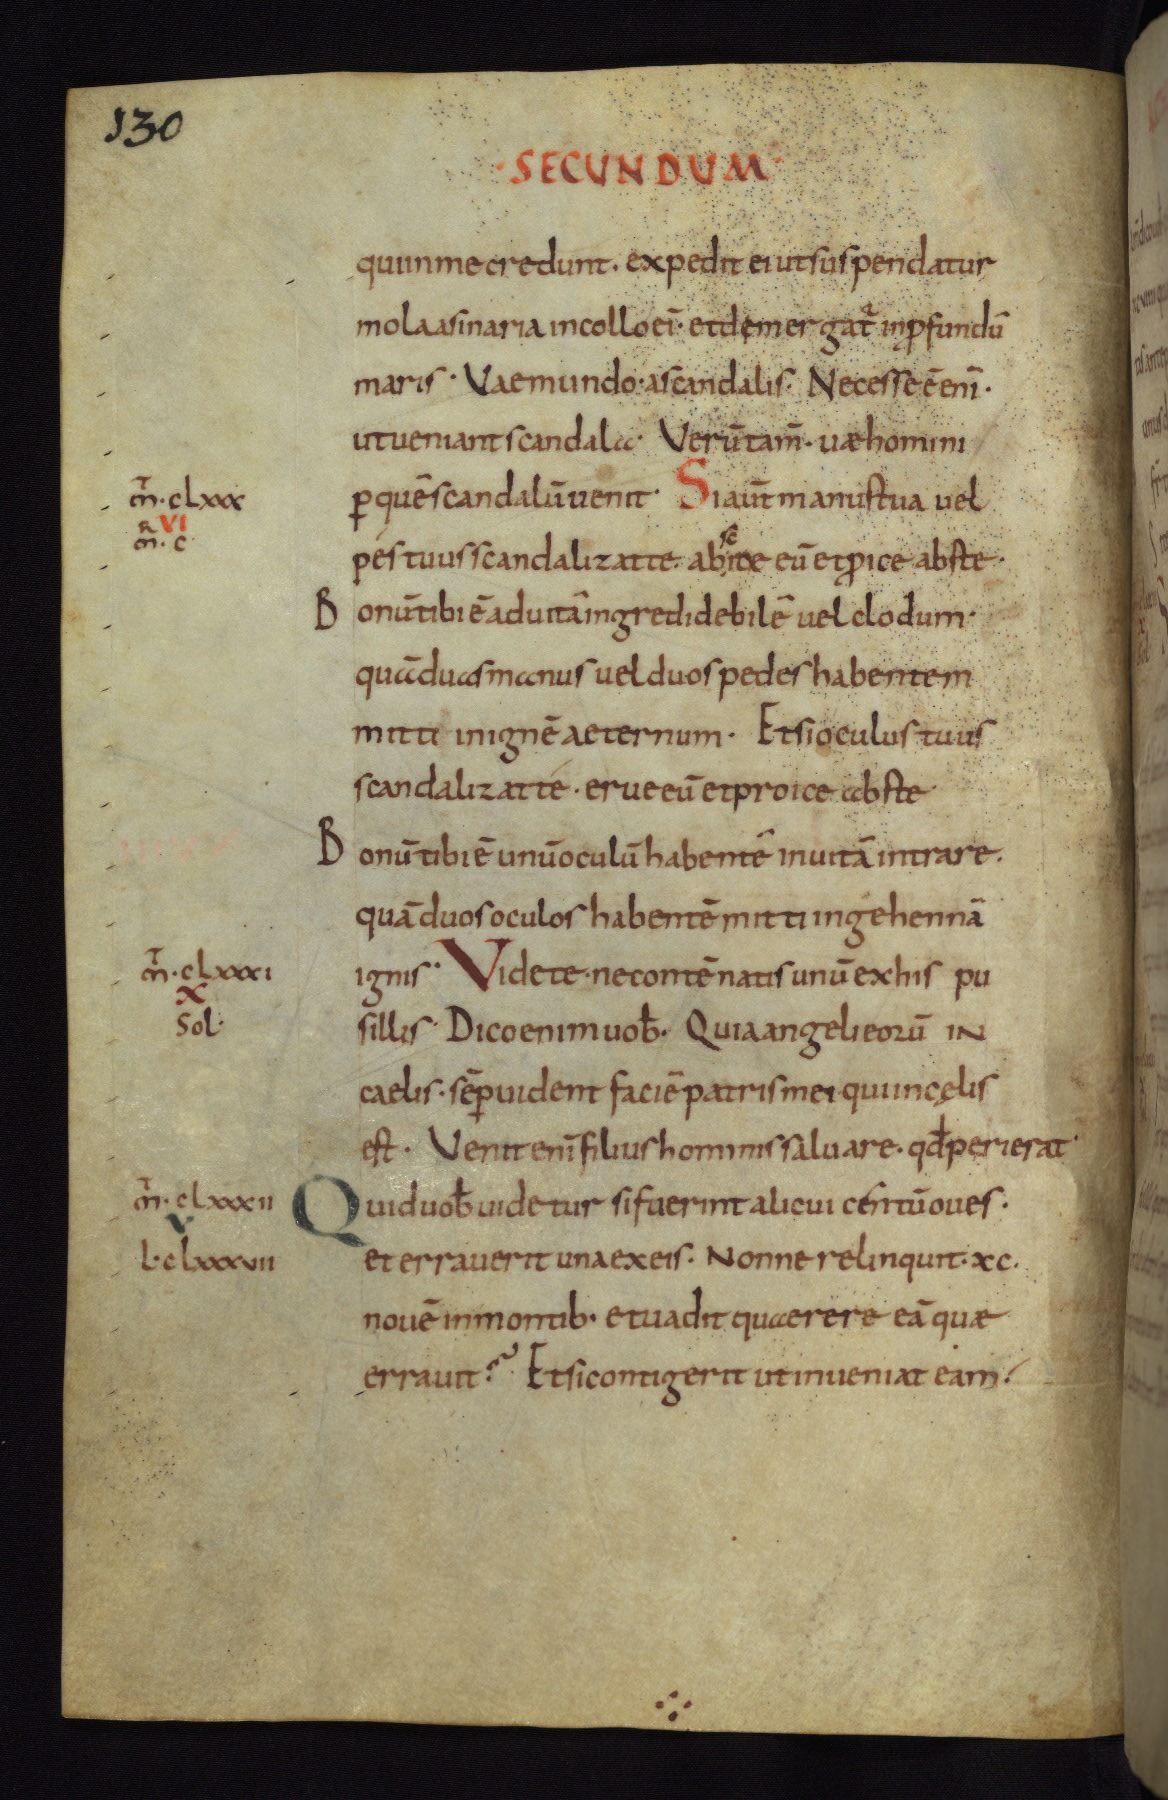 130
·SECUNDUM·
qui in me credunt. expedit ei ut suspendatur
mola asinaria in collo ei᾽. et demergat᷑ in ꝓfundū
maris · Vae mundo · a scandalis. Necesse ē enī ·
ut veniant scandala · Verūtam̄ · uæ homini
ꝑ quē scandalū uenit · Si aut̄ manus tua vel
m̄t · clxxx
pes tuus scandalizat te abscice eū et ꝓice abs te ·
VI
m̄r · c
Bonū tibi ē ad uitā ingredi debilē vel clodum ·
quā duas manus vel duos pedes habentem
mitti in ignē aeternum · Et si oculus tuus
scandalizat te · erue eū et proice abs te
Bonū tibi ē unū oculū habentē in uitā intrare.
quā duos oculos habentē mitti in gehennā
ignis · Videte · ne contēnatis unū ex his pu
m̄t · clxxxi
X
Sol ·
sillis · Dico enim uob̄ · Quia angeli eorū in
caelis · sēꝑ uident faciē patris mei · qui in cęlis
est · Venit enī filius hominis saluare · qd̄ perierat ·
Quid uob̄ uidetur si fuerint alicui centū oues ·
m̄t · clxxxii
V
l · clxxxvii
et erraverit una ex eis · Nonne relinquit · xc ·
nouē in montib · et vadit quaerere eā quæ
erravit? Et si contigerit ut inveniat eam ·